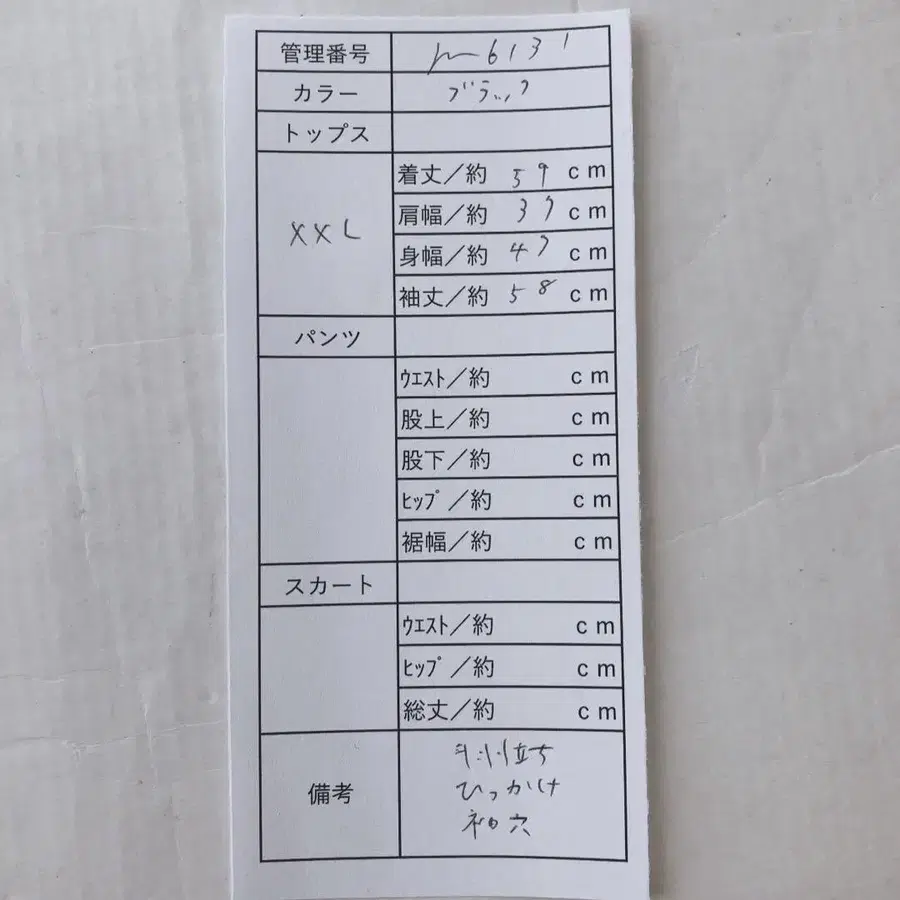 管理番号 m6131
カラー ブラック
トップス
XXL
着丈／約 59 cm
肩幅／約 37 cm
身幅／約 47 cm
袖丈／約 58 cm
パンツ
ｳｴｽﾄ／約 cm
股上／約 cm
股下／約 cm
ﾋｯﾌﾟ／約 cm
裾幅／約 cm
スカート
ｳｴｽﾄ／約 cm
ﾋｯﾌﾟ／約 cm
総丈／約 cm
備考
毛羽立ち
ひっかけ
袖穴